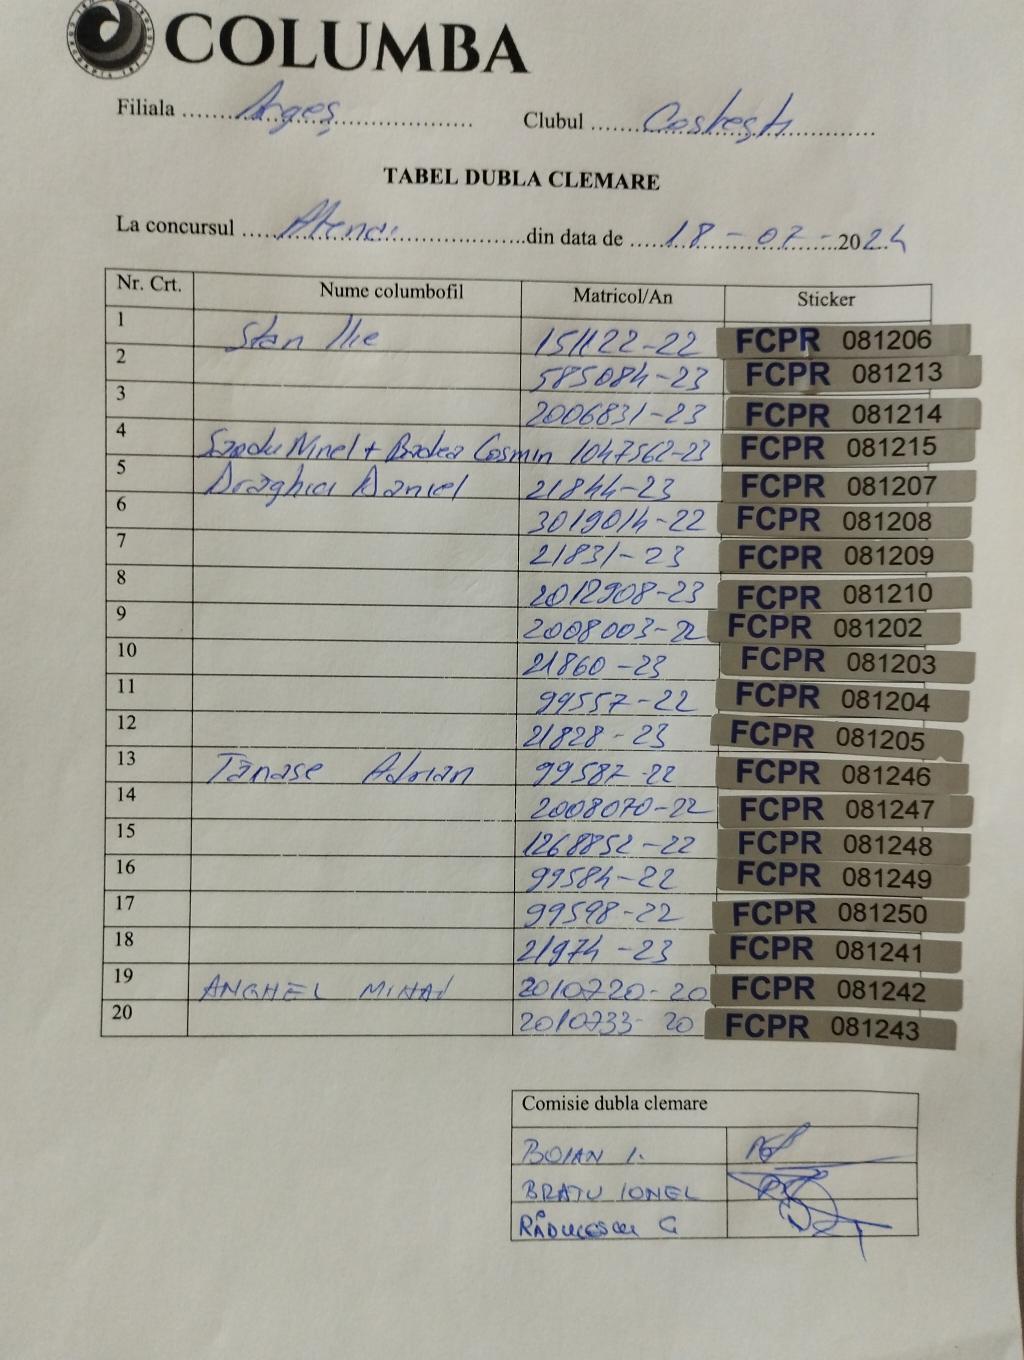 COLUMBA
Filiala Argeș Clubul Costești
TABEL DUBLA CLEMARE
La concursul Atena din data de 18-07-2024
Nr. Crt. Nume columbofil Matricol/An Sticker
1 Stan Ilie 151122-22 FCPR 081206
2 585084-23 FCPR 081213
3 2006831-23 FCPR 081214
4 Sandu Ninel + Badea Cosmin 1047562-23 FCPR 081215
5 Drăghici Daniel 21844-23 FCPR 081207
6 3019014-22 FCPR 081208
7 21831-23 FCPR 081209
8 2012908-23 FCPR 081210
9 2008003-22 FCPR 081202
10 21860-23 FCPR 081203
11 99557-22 FCPR 081204
12 21828-23 FCPR 081205
13 Tănase Adrian 99587-22 FCPR 081246
14 2008070-22 FCPR 081247
15 1268852-22 FCPR 081248
16 99584-22 FCPR 081249
17 99598-22 FCPR 081250
18 21974-23 FCPR 081241
19 ANGHEL MIHAI 2010720-20 FCPR 081242
20 2010733-20 FCPR 081243
Comisie dubla clemare
BOIAN I.
BRATU IONEL
RĂDUCESCU G